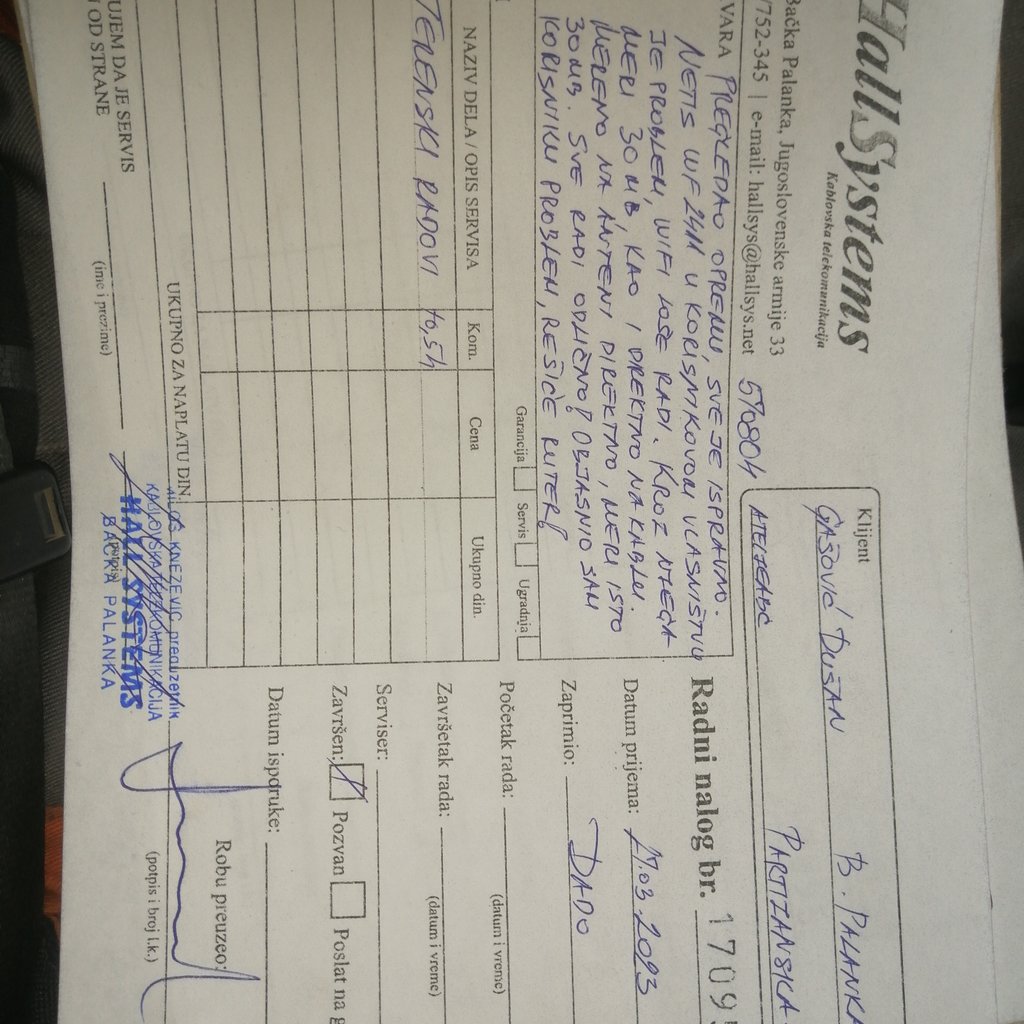 HallSystems
Kablovska telekomunikacija
Bačka Palanka, Jugoslovenske armije 33
/752-345 | e-mail: hallsys@hallsys.net
Klijent
GAŠOVIĆ DUŠAN B. PALANKA
PARTIZANSKA
VARA PREGLEDAO OPREMU, SVE JE ISPRAVNO.
NETIS WF 2411 U KORISNIKOVOM VLASNIŠTVU
JE PROBLEM, WIFI LOŠE RADI. KROZ NJEGA
MERI 30MB, KAO I DIREKTNO NA KABLU.
MERENO NA ANTENI DIREKTNO, MERI ISTO
30MB. SVE RADI ODLIČNO! OBJASNIO SAM
KORISNIKU PROBLEM, REŠIĆE RUTER!
Garancija Servis Ugradnja
Radni nalog br. 1709
Datum prijema: 03.2023
Zaprimio: DADO
Početak rada:
(datum i vreme)
Završetak rada:
(datum i vreme)
Serviser:
Završen: Pozvan Poslat na
Datum isporuke:
NAZIV DELA / OPIS SERVISA Kom. Cena Ukupno din.
TERENSKI RADOVI 0,5h
UKUPNO ZA NAPLATU DIN.
UJEM DA JE SERVIS
OD STRANE
(ime i prezime)
(potpis)
MILOŠ KNEZEVIC preduzetnik
KABLOVSKA TELEKOMUNIKACIJA
HALL SYSTEMS
BAČKA PALANKA
Robu preuzeo:
(potpis i broj l.k.)